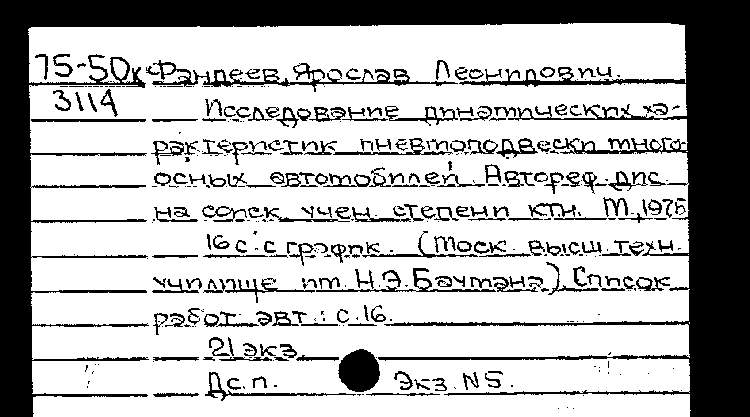 75-50к Фандеев, Ярослав Леонидович.
3114 Исследование динамических ха-
рактеристик пневмоподвески много-
осных автомобилей. Автореф. дис.
на соиск. учен. степени ктн. М., 1975
16 с. с график. (Моск. высш. техн.
училище им. Н.Э. Баумана). Список
работ авт.: с. 16.
21 экз.
Дс.п. Экз. N5.